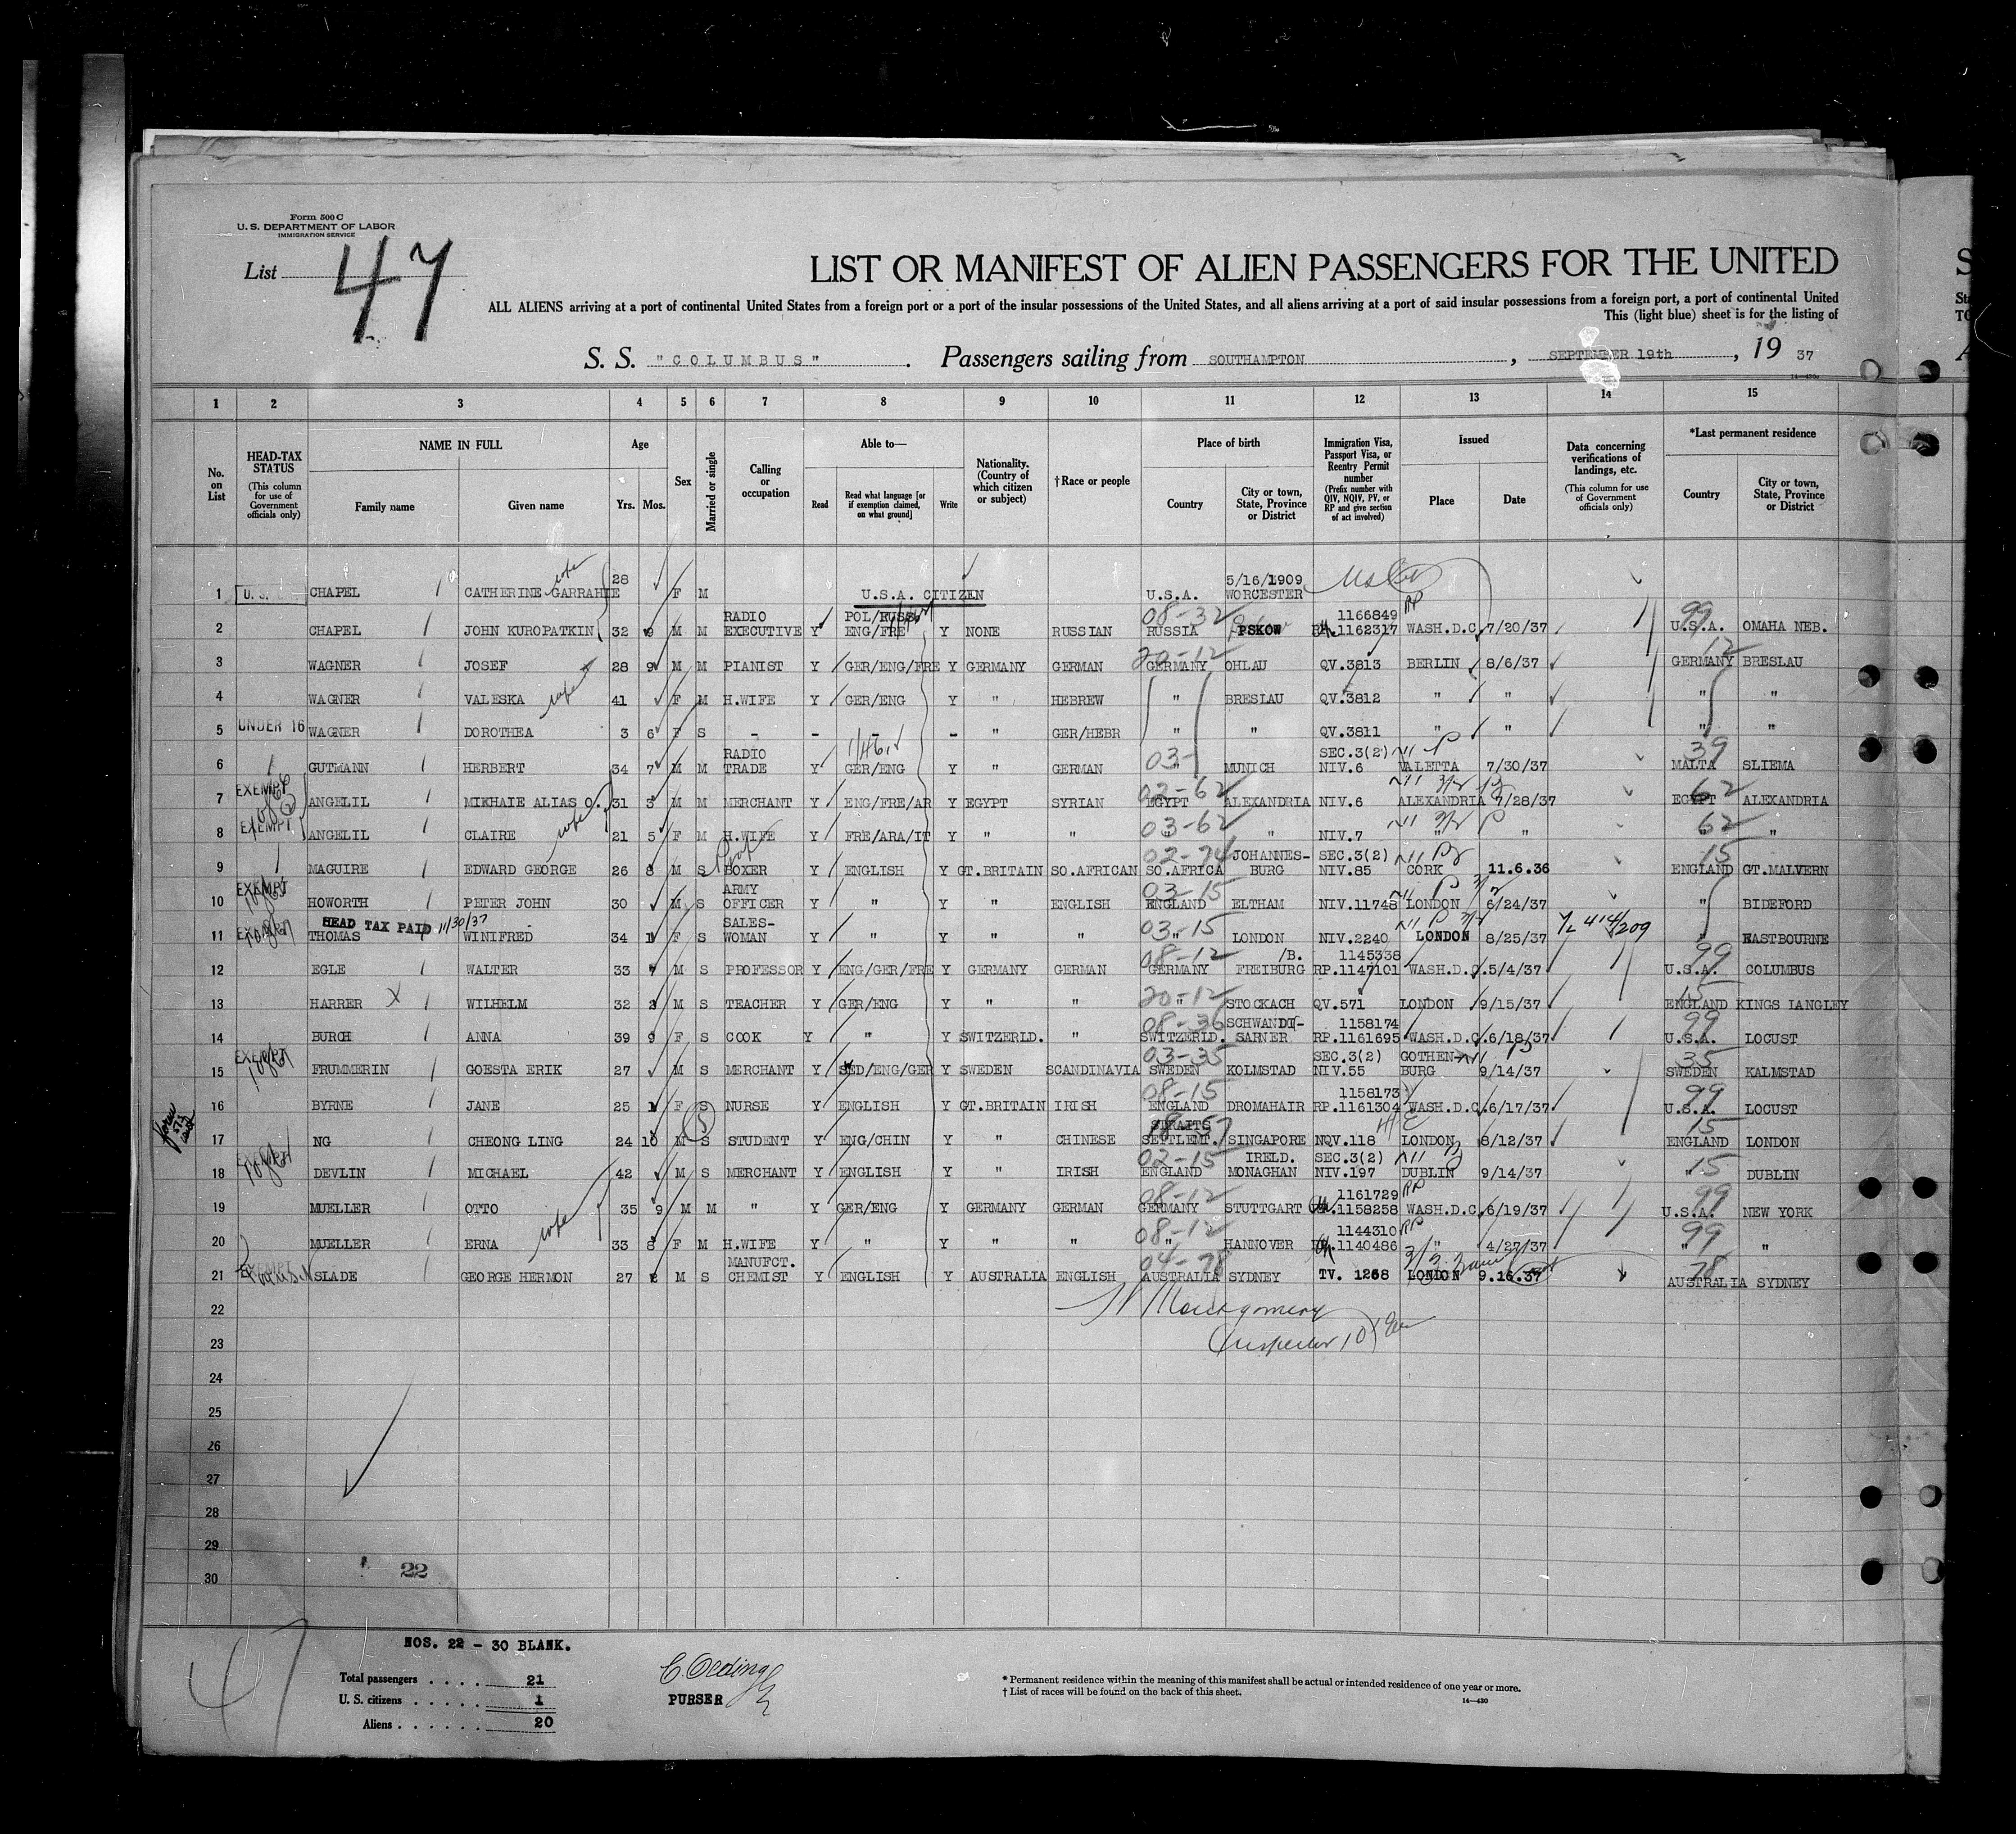 Form 500 C
U. S. DEPARTMENT OF LABOR
IMMIGRATION SERVICE
List 47
LIST OR MANIFEST OF ALIEN PASSENGERS FOR THE UNITED
ALL ALIENS arriving at a port of continental United States from a foreign port or a port of the insular possessions of the United States, and all aliens arriving at a port of said insular possessions from a foreign port, a port of continental United
This (light blue) sheet is for the listing of
S. S. "COLUMBUS". Passengers sailing from SOUTHAMPTON, SEPTEMBER 19th, 19 37
14—430
1 2 3 4 5 6 7 8 9 10 11 12 13 14 15
No. on List
HEAD-TAX STATUS (This column for use of Government officials only)
NAME IN FULL Family name Given name
Age Yrs. Mos.
Sex
Married or single
Calling or occupation
Able to— Read Read what language [or if exemption claimed, on what ground] Write
Nationality. (Country of which citizen or subject)
†Race or people
Place of birth Country City or town, State, Province or District
Immigration Visa, Passport Visa, or Reentry Permit number (Prefix number with QIV, NQIV, PV, or RP and give section of act involved)
Issued Place Date
Data concerning verifications of landings, etc. (This column for use of Government officials only)
*Last permanent residence Country City or town, State, Province or District
1 U.S. CHAPEL CATHERINE GARRAHIE wife 28 F M U.S.A. CITIZEN U.S.A. 5/16/1909 WORCESTER
2 CHAPEL JOHN KUROPATKIN 32 9 M M RADIO EXECUTIVE Y POL/RUSS/ ENG/FRE Y NONE RUSSIAN 08-32 RUSSIA PSKOW 1166849 1162317 RP WASH.D.C. 7/20/37 99 U.S.A. OMAHA NEB.
3 WAGNER JOSEF 28 9 M M PIANIST Y GER/ENG/FRE Y GERMANY GERMAN 20-12 GERMANY OHLAU QV.3813 BERLIN 8/6/37 12 GERMANY BRESLAU
4 WAGNER VALESKA wife 41 F M H.WIFE Y GER/ENG Y " HEBREW " BRESLAU QV.3812 " " " "
5 UNDER 16 WAGNER DOROTHEA 3 6 F S - - - - " GER/HEBR " " QV.3811 " " " "
6 GUTMANN HERBERT 34 7 M M RADIO TRADE Y GER/ENG Y " GERMAN 03- " MUNICH SEC.3(2) NIV.6 VALETTA 7/30/37 39 MALTA SLIEMA
7 EXEMPT ANGELIL MIKHAIE ALIAS O. 31 3 M M MERCHANT Y ENG/FRE/AR Y EGYPT SYRIAN 02-62 EGYPT ALEXANDRIA NIV.6 ALEXANDRIA 7/28/37 62 EGYPT ALEXANDRIA
8 EXEMPT ANGELIL CLAIRE wife 21 5 F M H.WIFE Y FRE/ARA/IT Y " " 03-62 " " NIV.7 " " 62 "
9 MAGUIRE EDWARD GEORGE 26 8 M S BOXER Y ENGLISH Y GT.BRITAIN SO.AFRICAN 02-74 SO.AFRICA JOHANNES- BURG SEC.3(2) NIV.85 CORK 11.6.36 15 ENGLAND GT.MALVERN
10 EXEMPT HOWORTH PETER JOHN 30 M S ARMY OFFICER Y " Y " ENGLISH 03-15 ENGLAND ELTHAM NIV.11748 LONDON 6/24/37 " BIDEFORD
11 EXEMPT HEAD TAX PAID 11/30/37 THOMAS WINIFRED 34 1 F S SALES- WOMAN Y " Y " " 03-15 " LONDON NIV.2240 LONDON 8/25/37 414/209 " EASTBOURNE
12 EGLE WALTER 33 M S PROFESSOR Y ENG/GER/FRE Y GERMANY GERMAN 08-12 GERMANY /B. FREIBURG 1145338 RP.1147101 WASH.D.C. 5/4/37 99 U.S.A. COLUMBUS
13 HARRER X WILHELM 32 M S TEACHER Y GER/ENG Y " " 20-12 " STOCKACH QV.571 LONDON 9/15/37 15 ENGLAND KINGS LANGLEY
14 BURCH ANNA 39 9 F S COOK Y " Y SWITZERLD. " 08-36 SWITZERLD. SCHWANDI- SARNER 1158174 RP.1161695 WASH.D.C. 6/18/37 99 U.S.A. LOCUST
15 EXEMPT FRUMMERIN GOESTA ERIK 27 M S MERCHANT Y SED/ENG/GER Y SWEDEN SCANDINAVIA 03-35 SWEDEN KOLMSTAD SEC.3(2) NIV.55 GOTHEN- BURG 9/14/37 35 SWEDEN KALMSTAD
16 BYRNE JANE 25 1 F S NURSE Y ENGLISH Y GT.BRITAIN IRISH 08-15 ENGLAND DROMAHAIR 1158173 RP.1161304 WASH.D.C. 6/17/37 99 U.S.A. LOCUST
17 NG CHEONG LING 24 10 M S STUDENT Y ENG/CHIN Y " CHINESE STRAITS SETTLEMT. 18-57 SINGAPORE NQV.118 LONDON 8/12/37 15 ENGLAND LONDON
18 EXEMPT DEVLIN MICHAEL 42 M S MERCHANT Y ENGLISH Y " IRISH 02-15 ENGLAND IRELD. MONAGHAN SEC.3(2) NIV.197 DUBLIN 9/14/37 15 " DUBLIN
19 MUELLER OTTO 35 9 M M " Y GER/ENG Y GERMANY GERMAN 08-12 GERMANY STUTTGART 1161729 RP .1158258 WASH.D.C. 6/19/37 99 U.S.A. NEW YORK
20 MUELLER ERNA wife 33 8 F M H.WIFE Y " Y " " 08-12 " HANNOVER 1144310 RP .1140486 " 4/27/37 99 " "
21 SLADE GEORGE HERMON 27 M S MANUFCT. CHEMIST Y ENGLISH Y AUSTRALIA ENGLISH 04-78 AUSTRALIA SYDNEY TV. 1268 LONDON 9.16.37 78 AUSTRALIA SYDNEY
22 Montgomery
23 Inspector
24
25
26
27
28
29
30
22
47
NOS. 22 - 30 BLANK.
Total passengers . . . . 21
U. S. citizens . . . . . 1
Aliens . . . . . . 20
PURSER
* Permanent residence within the meaning of this manifest shall be actual or intended residence of one year or more.
† List of races will be found on the back of this sheet.
14—430